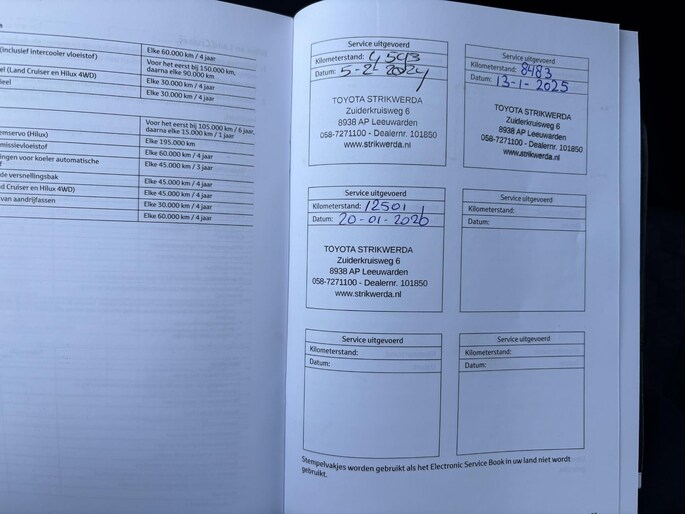 (inclusief intercooler vloeistof)
Elke 60.000 km / 4 jaar
Voor het eerst bij 150.000 km,
daarna elke 90.000 km
el (Land Cruiser en Hilux 4WD)
Elke 30.000 km / 4 jaar
ieel
Elke 30.000 km / 4 jaar
Voor het eerst bij 105.000 km / 6 jaar,
daarna elke 15.000 km / 1 jaar
emservo (Hilux)
Elke 195.000 km
missievloeistof
Elke 60.000 km / 4 jaar
ingen voor koeler automatische
Elke 45.000 km / 3 jaar
de versnellingsbak
Elke 45.000 km / 4 jaar
nd Cruiser en Hilux 4WD)
Elke 45.000 km / 4 jaar
van aandrijfassen
Elke 30.000 km / 4 jaar
Elke 60.000 km / 4 jaar
Service uitgevoerd
Kilometerstand:
Datum: 5-2-2024
TOYOTA STRIKWERDA
Zuiderkruisweg 6
8938 AP Leeuwarden
058-7271100 - Dealernr. 101850
www.strikwerda.nl
Service uitgevoerd
Kilometerstand: 8483
Datum: 13-1-2025
TOYOTA STRIKWERDA
Zuiderkruisweg 6
8938 AP Leeuwarden
058-7271100 - Dealernr. 101850
www.strikwerda.nl
Service uitgevoerd
Kilometerstand: 12501
Datum: 20-01-2026
TOYOTA STRIKWERDA
Zuiderkruisweg 6
8938 AP Leeuwarden
058-7271100 - Dealernr. 101850
www.strikwerda.nl
Service uitgevoerd
Kilometerstand:
Datum:
Service uitgevoerd
Kilometerstand:
Datum:
Service uitgevoerd
Kilometerstand:
Datum:
Stempelvakjes worden gebruikt als het Electronic Service Book in uw land niet wordt
gebruikt.